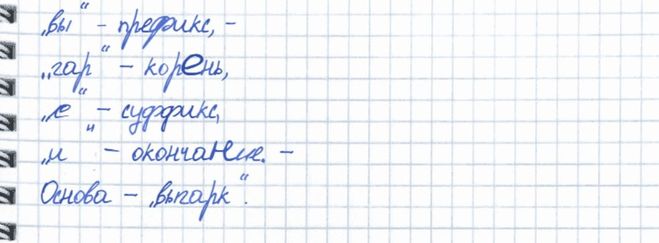 „вы“ - префикс, -
„гар“ - корень,
„е“ - суффикс,
„и“ - окончание. -
Основа - „выгарк“.